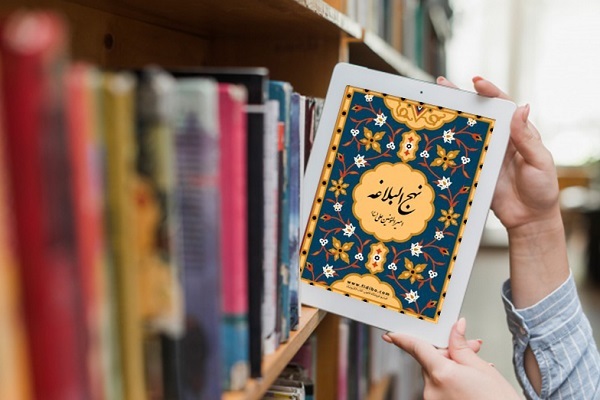 نهج البلاغه
امیرالمؤمنین علی
www.fidibo.com